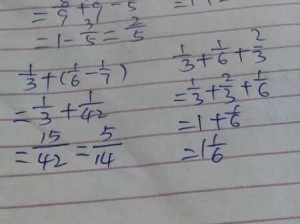 = 1 - 3/5 = 2/5
1/3 + (1/6 - 1/7)
= 1/3 + 1/42
= 15/42 = 5/14
1/3 + 1/6 + 2/3
= 1/3 + 2/3 + 1/6
= 1 + 1/6
= 1 1/6